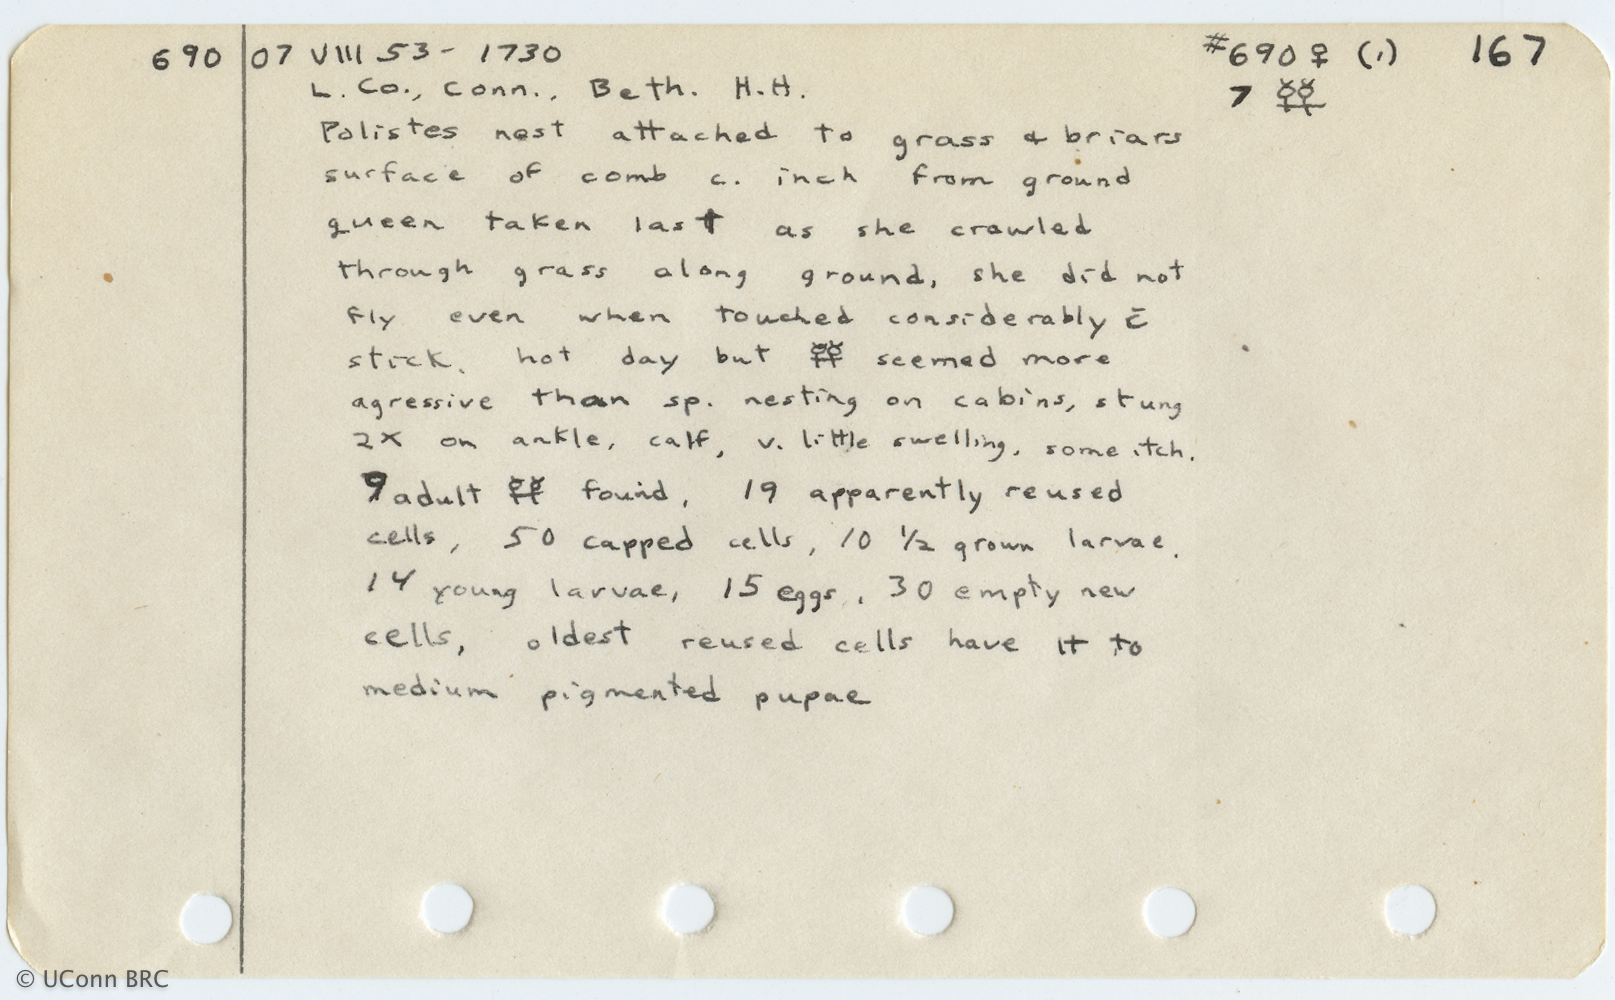 690 07 VIII 53- 1730 #690 ♀ (1) 167
L. Co., Conn., Beth. H.H. 7 ☿☿
Polistes nest attached to grass & briars
surface of comb c. inch from ground
queen taken last as she crawled
through grass along ground, she did not
fly even when touched considerably c̄
stick. hot day but ☿☿ seemed more
agressive than sp. nesting on cabins, stung
2X on ankle, calf, v. little swelling, some itch.
9 adult ☿☿ found, 19 apparently reused
cells, 50 capped cells, 10 ½ grown larvae,
14 young larvae, 15 eggs, 30 empty new
cells, oldest reused cells have lt to
medium pigmented pupae
© UConn BRC